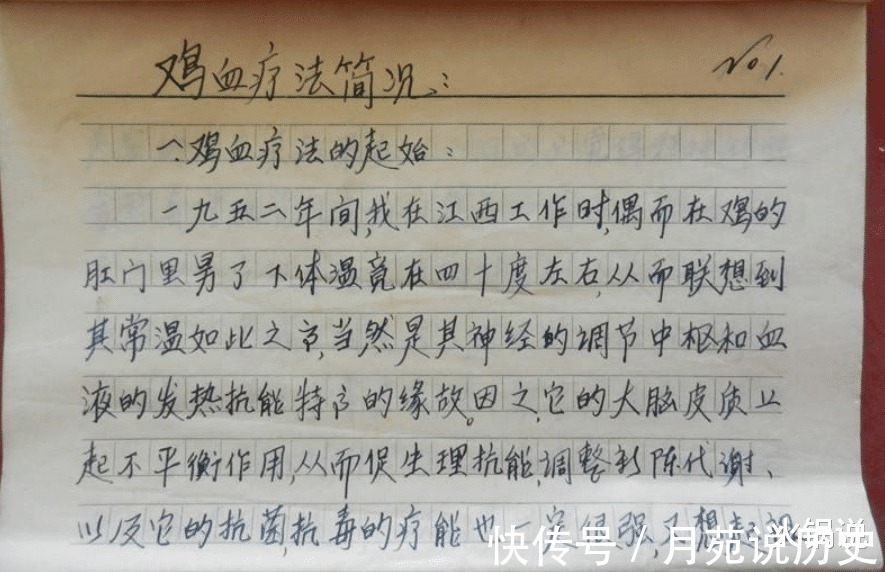 鸡血疗法简况：
No 1.
一、鸡血疗法的起始：
一九五二年间，我在江西工作时，偶而在鸡的
肛门里另了下体温竟在四十度左右，从而联想到
其常温如此之高，当然是其神经的调节中枢和血
液的发热抗能特高的缘故。因之，它的大脑皮质
起不平衡作用，从而促生理抗能，调整新陈代谢、
以及它的抗菌，抗毒的疗能也一定很强，又想起
快传号 / 月苑说历史